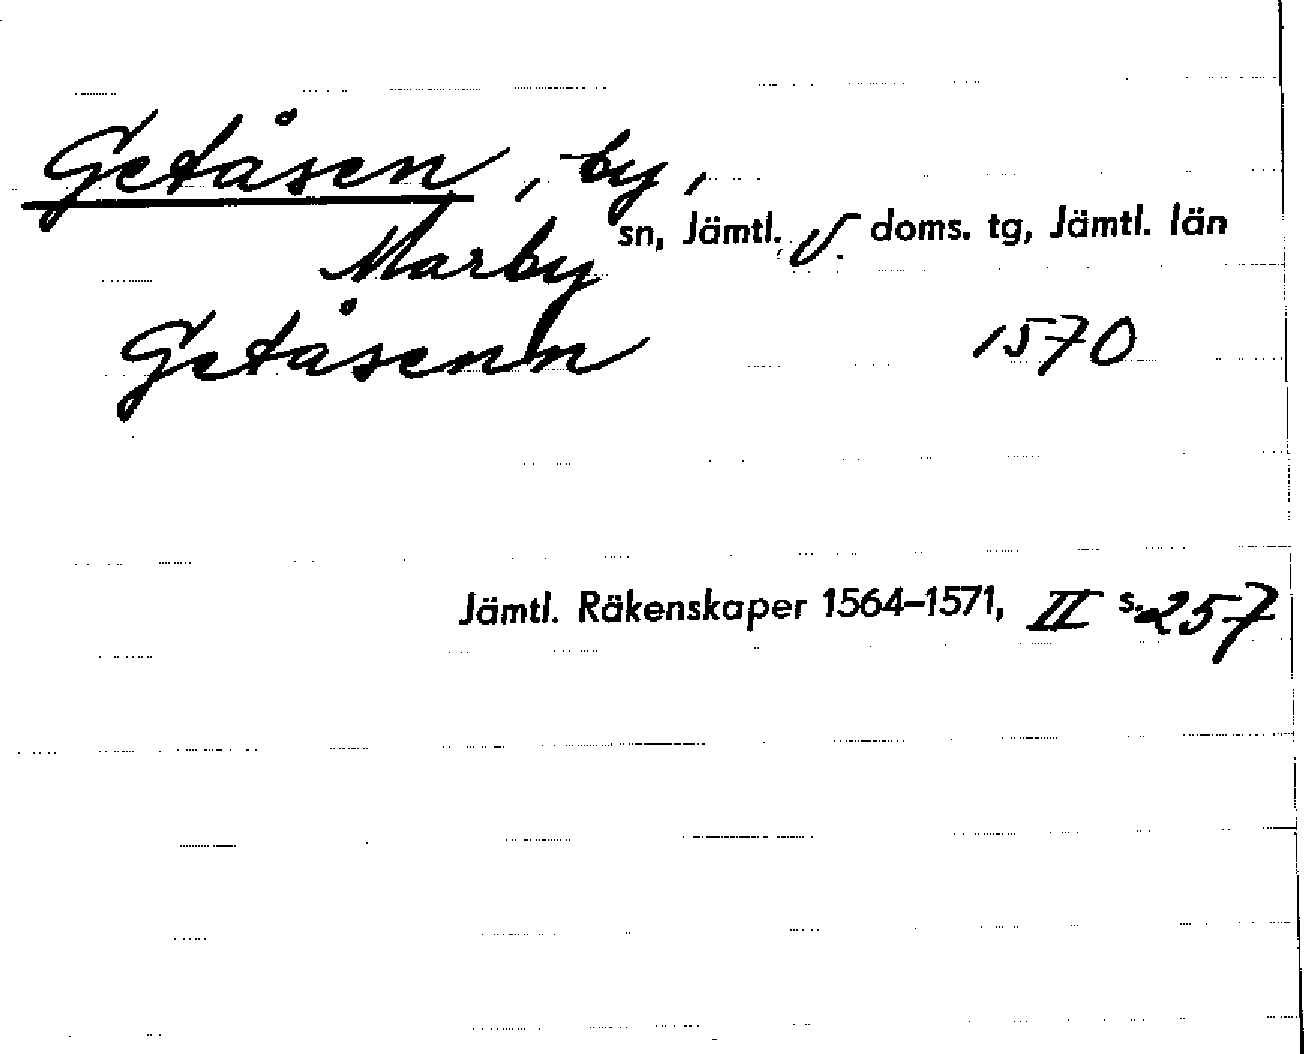 Getåsen, by,
Marby sn, Jämtl. v. doms. tg, Jämtl. län
Getåsenn 1570
Jämtl. Räkenskaper 1564–1571, II s. 257